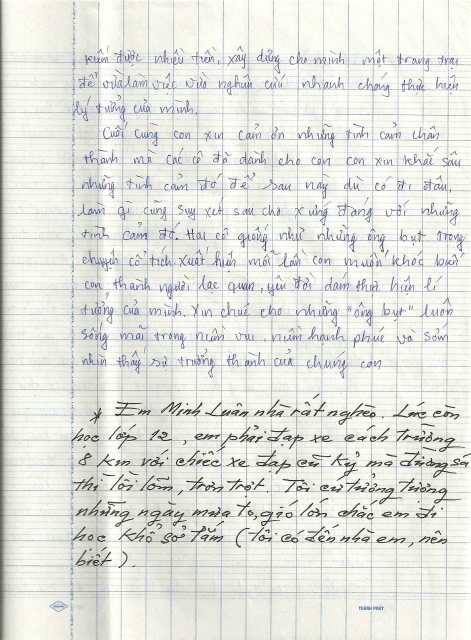 kiếm được nhiều tiền, xây dựng cho mình một trang trại
để vừa làm việc vừa nghiên cứu nhanh chóng thực hiện
lý tưởng của mình.
Cuối cùng con xin cảm ơn những tình cảm chân
thành mà các cô đã dành cho con con xin khắc sâu
những tình cảm đó để sau này dù có đi đâu,
làm gì cũng suy xét sao cho xứng đáng với những
tình cảm đó. Hai cô giống như những ông bụt trong
chuyện cổ tích xuất hiện mỗi lần con muốn khóc biến
con thành người lạc quan, yêu đời dám thực hiện lí
tưởng của mình. Xin chúc cho những "ông bụt" luôn
sống mãi trong niềm vui, niềm hạnh phúc và sớm
nhìn thấy sự trưởng thành của chúng con
* Em Minh Luân nhà rất nghèo. Lúc còn
học lớp 12, em phải đạp xe cách trường
8 km với chiếc xe đạp cũ kỹ mà đường sá
thì lồi lõm, trơn trợt. Tôi cứ tưởng tượng
những ngày mưa to, gió lớn chắc em đi
học khổ sở lắm (tôi có đến nhà em, nên
biết).
THÀNH PHÁT